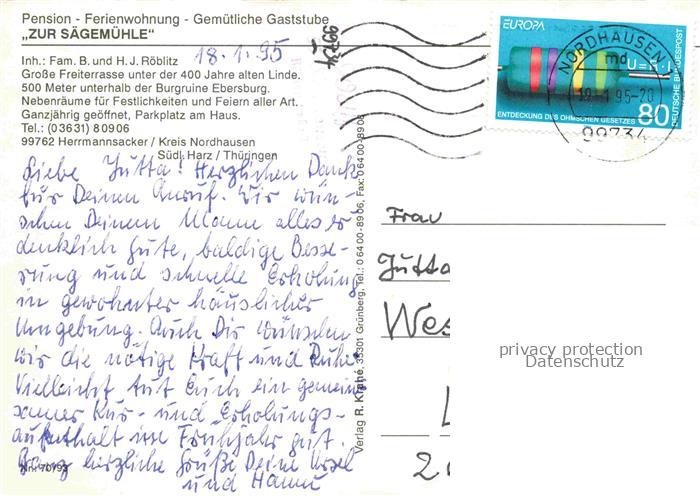 Pension - Ferienwohnung - Gemütliche Gaststube
„ZUR SÄGEMÜHLE“
18.1.95
Inh.: Fam. B. und H. J. Röblitz
Große Freiterrasse unter der 400 Jahre alten Linde.
500 Meter unterhalb der Burgruine Ebersburg.
Nebenräume für Festlichkeiten und Feiern aller Art.
Ganzjährig geöffnet, Parkplatz am Haus.
Tel.: (03631) 80906
99762 Herrmannsacker / Kreis Nordhausen
Südl. Harz / Thüringen
Liebe Jutta! Herzlichen Dank
für Deinen Anruf. Wir wün-
schen Deinem Manne alles er-
denklich Gute, baldige Besse-
rung und schnelle Erholung
in gewohnter häuslicher
Umgebung. Auch Dir wünschen
wir die nötige Kraft und Ruhe
Vielleicht tut Euch ein gemein-
samer Kur- und Erholungs-
aufenthalt im Frühjahr gut.
Ganz herzliche Grüße Deine Ursel
und Hannu
Nr. 70193
Verlag R. Krahé, 35301 Grünberg, Tel.: 0 64 00-89 06, Fax: 0 64 00-89 08
EUROPA
U=R·I
DEUTSCHE BUNDESPOST
ENTDECKUNG DES OHMSCHEN GESETZES
80
NORDHAUSEN
md
18.-1.95-20
99734
99734
Frau
Jutta
Wes
privacy protection
Datenschutz
L
20